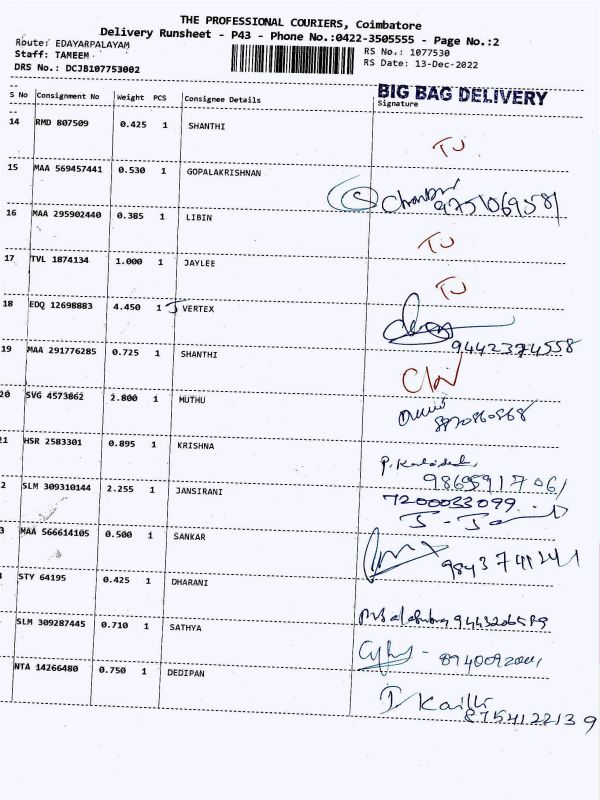 THE PROFESSIONAL COURIERS, Coimbatore
Delivery Runsheet - P43 - Phone No.:0422-3505555 - Page No.:2
Route: EDAYARPALAYAM
Staff: TAMEEM
DRS No.: DCJB107753002
RS No.: 1077530
RS Date: 13-Dec-2022
BIG BAG DELIVERY
S No Consignment No Weight PCS Consignee Details Signature
14 RMD 807509 0.425 1 SHANTHI TJ
15 MAA 569457441 0.530 1 GOPALAKRISHNAN
9751069581
16 MAA 295902440 0.385 1 LIBIN TJ
17 TVL 1874134 1.000 1 JAYLEE TJ
18 EDQ 12698883 4.450 1 J VERTEX
9442374558
19 MAA 291776285 0.725 1 SHANTHI
20 SVG 4573862 2.800 1 MUTHU
21 HSR 2583301 0.895 1 KRISHNA
2 SLM 309310144 2.255 1 JANSIRANI 7200033099
3 MAA 566614105 0.500 1 SANKAR
9843741241
STY 64195 0.425 1 DHARANI
SLM 309287445 0.710 1 SATHYA
NTA 14266480 0.750 1 DEDIPAN
8754122139